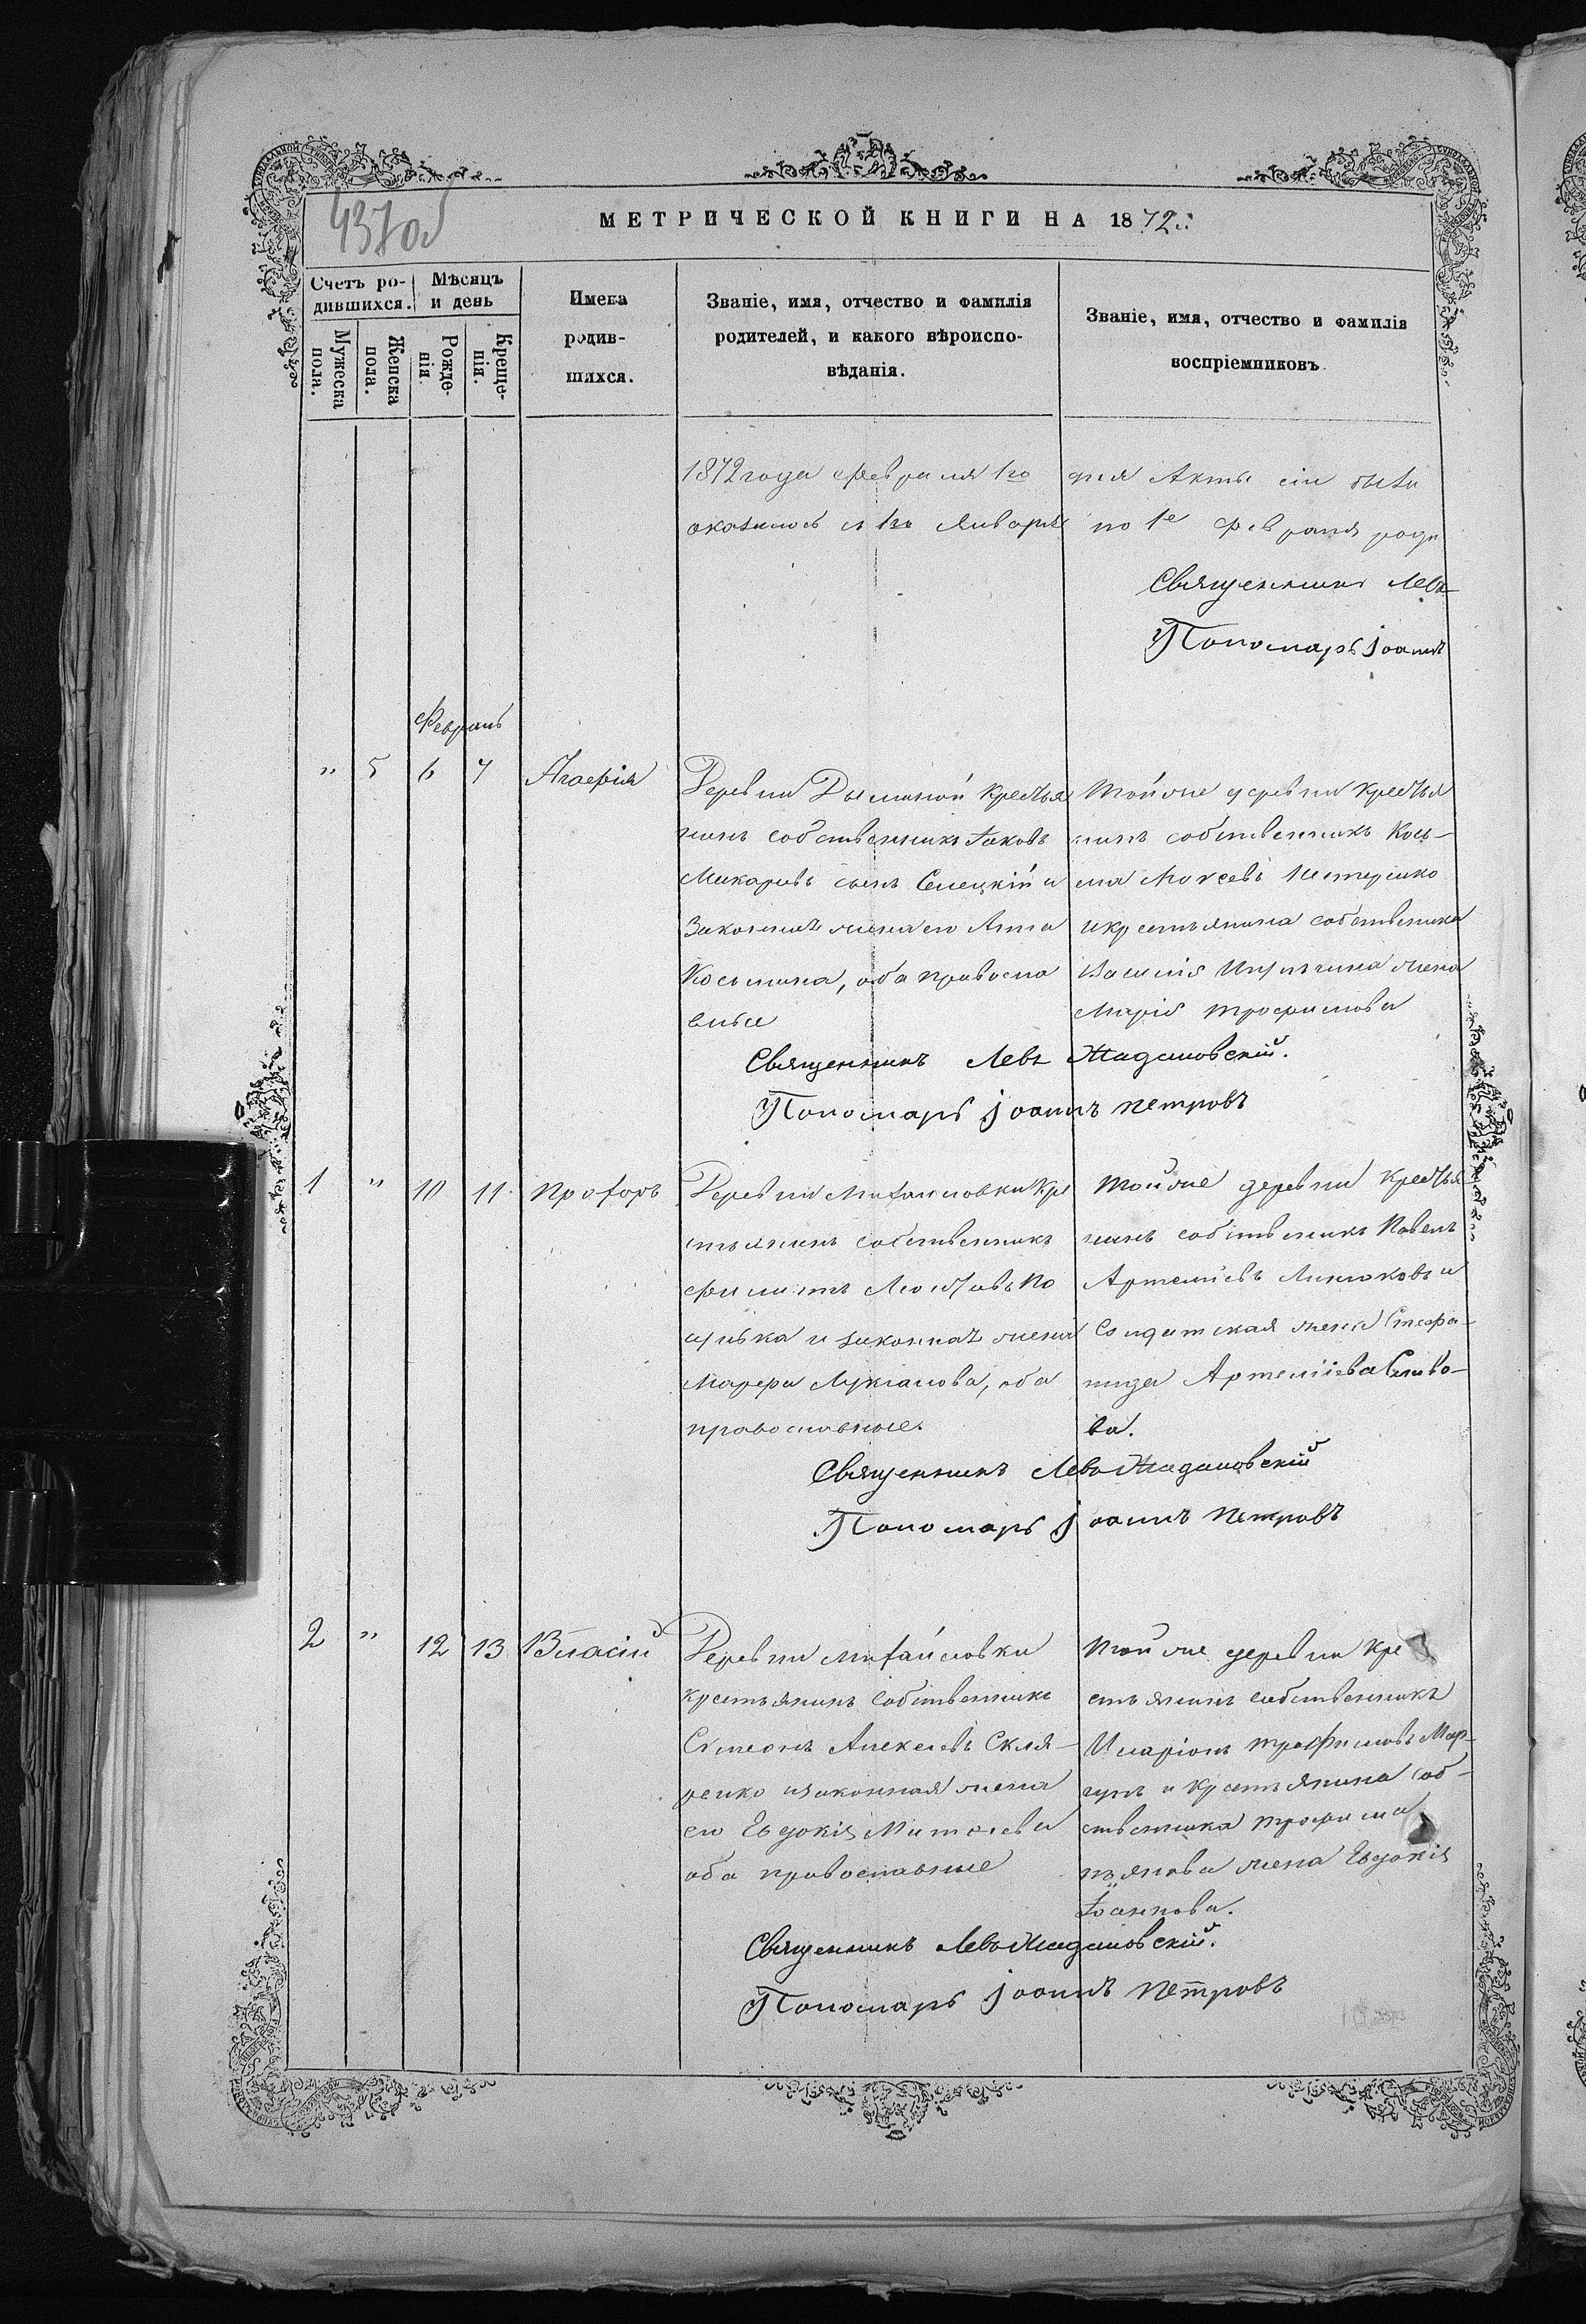 437об
МЕТРИЧЕСКОЙ КНИГИ НА 1872:
Счетъ родившихся.
Мѣсяцъ и день
Имена родившихся.
Званіе, имя, отчество и фамилія родителей, и какого вѣроисповѣданія.
Званіе, имя, отчество и фамилія воспріемниковъ.
Мужеска пола.
Женска пола.
Рожденія.
Крещенія.
1872 года Февраля 1го дня Акты сіи были
оказалось съ 1го Января по 1е Февраля роди
Священникъ Левъ
Пономарь Іоаннъ
Февраль
" 5 6 7 Агафія
Деревни Дыминой крестья
нинъ собственникъ Іаковъ
Макаровъ сынъ Селецкій и
Законная жена его Анна
Косьмина, оба правосла
вные
Той же деревни крестья
нинъ собственникъ Кось-
ма Моѵсеевъ
и крестьянина собственника
Василія жена
Марія Трофимова
Священникъ Левъ Жадановскій.
Пономарь Іоаннъ Петровъ
1 " 10 11 Прохоръ
Деревни Михайловки Кре
стьянинъ собственникъ
Филиппъ
и законная жена
Лукіанова, оба
православные.
Той же деревни крестья
нинъ собственникъ Павелъ
Артеміевъ и
Солдатская жена Стефа-
нида Артеміева
ва.
Священникъ Левъ Жадановскій
Пономарь Іоаннъ Петровъ
2 " 12 13 Власій
Деревни Михайловки
крестьянинъ собственникъ
Сѵмеонъ Алексеевъ Скля-
ренко и законная жена
его Евдокія Матѳеева
оба православные
Той же деревни кре
стьянинъ собственникъ
Иларіонъ Трофимовъ
и крестьянина соб-
ственника Трофима
жена Евдокія
Іоаннова.
Священникъ Левъ Жадановскій.
Пономарь Іоаннъ Петровъ